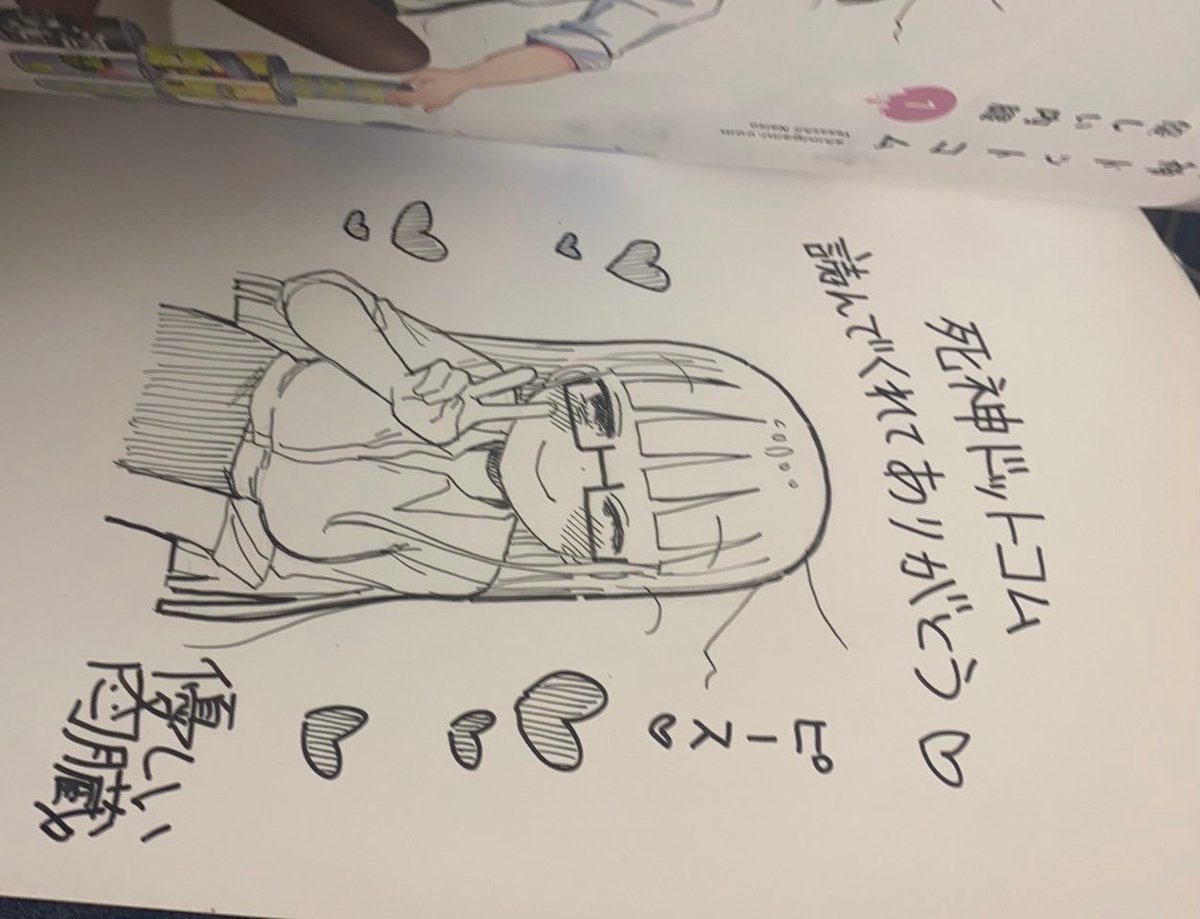 死神ドットコム
読んでくれてありがとう♡
ピース♡
優しい内臓
ドットコム
1
しい内臓